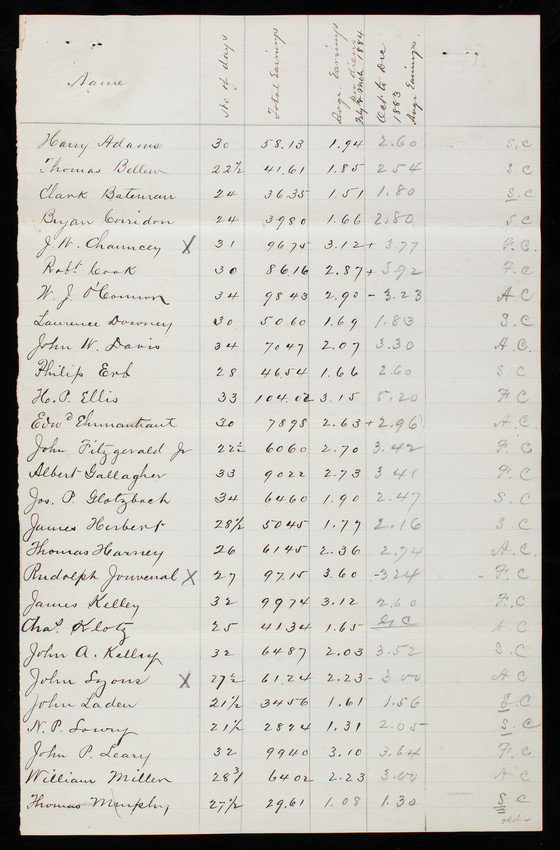 Name No of days Total Earnings Avge. Earnings per diem Feby & Mch 1884 Oct to Dec 1883 Avge Earnings.
Harry Adams 30 58.13 1.94 2.60 S.C
Thomas Bellew 22½ 41.61 1.85 254 S C
Clark Bateman 24 36.35 1.51 1.80 S.C
Bryan Corridon 24 3980 1.66 2.80 S C
J. W. Chauncey X 31 9675 3.12 + 3.77 F.C.
Robt Cook 30 8616 2.87 + 5.92 F.C
W. J. O'Connor 34 9843 2.90 - 3.23 A C
Laurence Downey 30 5060 1.69 1.83 S.C
John W. Davis 34 7047 2.07 3.30 A.C.
Philip Erb 28 4654 1.66 2.60 S C
H. P. Ellis 33 104.02 3.15 5.20 F C
Edwd Ehrmantraut 30 7898 2.63 + 2.96 A.C.
John Fitzgerald Jr 22½ 6060 2.70 3.42 F.C
Albert Gallagher 33 9022 2.73 3 41 F.C
Jos. P. Glotzbach 34 6460 1.90 2.47 S.C
James Herbert 28½ 5045 1.77 2.16 S C
Thomas Harney 26 6145 2.36 2.74 A.C.
Rudolph Jouvenal X 27 97.15 3.60 -324 - F.C
James Kelley 32 9974 3.12 2.60 F.C
Chas. Klotz 25 4134 1.65 G C A.C
John A. Kelley 32 6487 2.03 3.52 S.C
John Lyons X 27½ 61.24 2.23 - 3.00 A C
John Laden 21½ 3456 1.61 1.56 S.C
N. P. Lowry 21½ 2824 1.31 2.05 S.C
John P. Leary 32 9940 3.10 3.64 F.C
William Miller 28¾ 6402 2.23 3.00 A C
Thomas Murphy 27½ 29.61 1.08 1.30 S C
old-